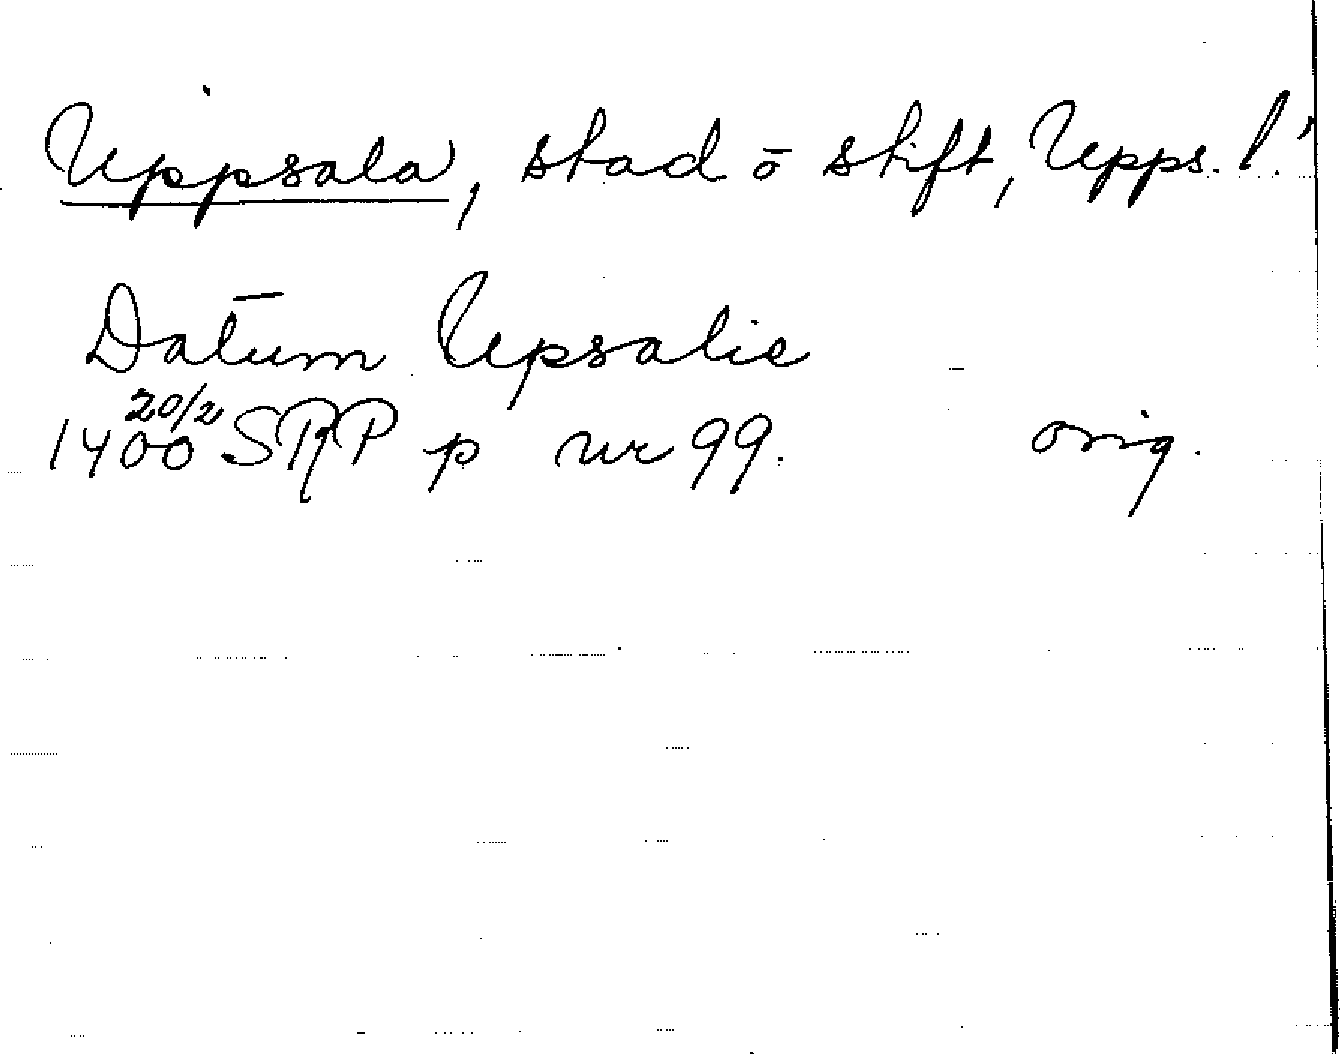 Uppsala, stad ō stift, Upps. l.
Datum Upsalie
20/2
1400 SRP p nr 99. orig.